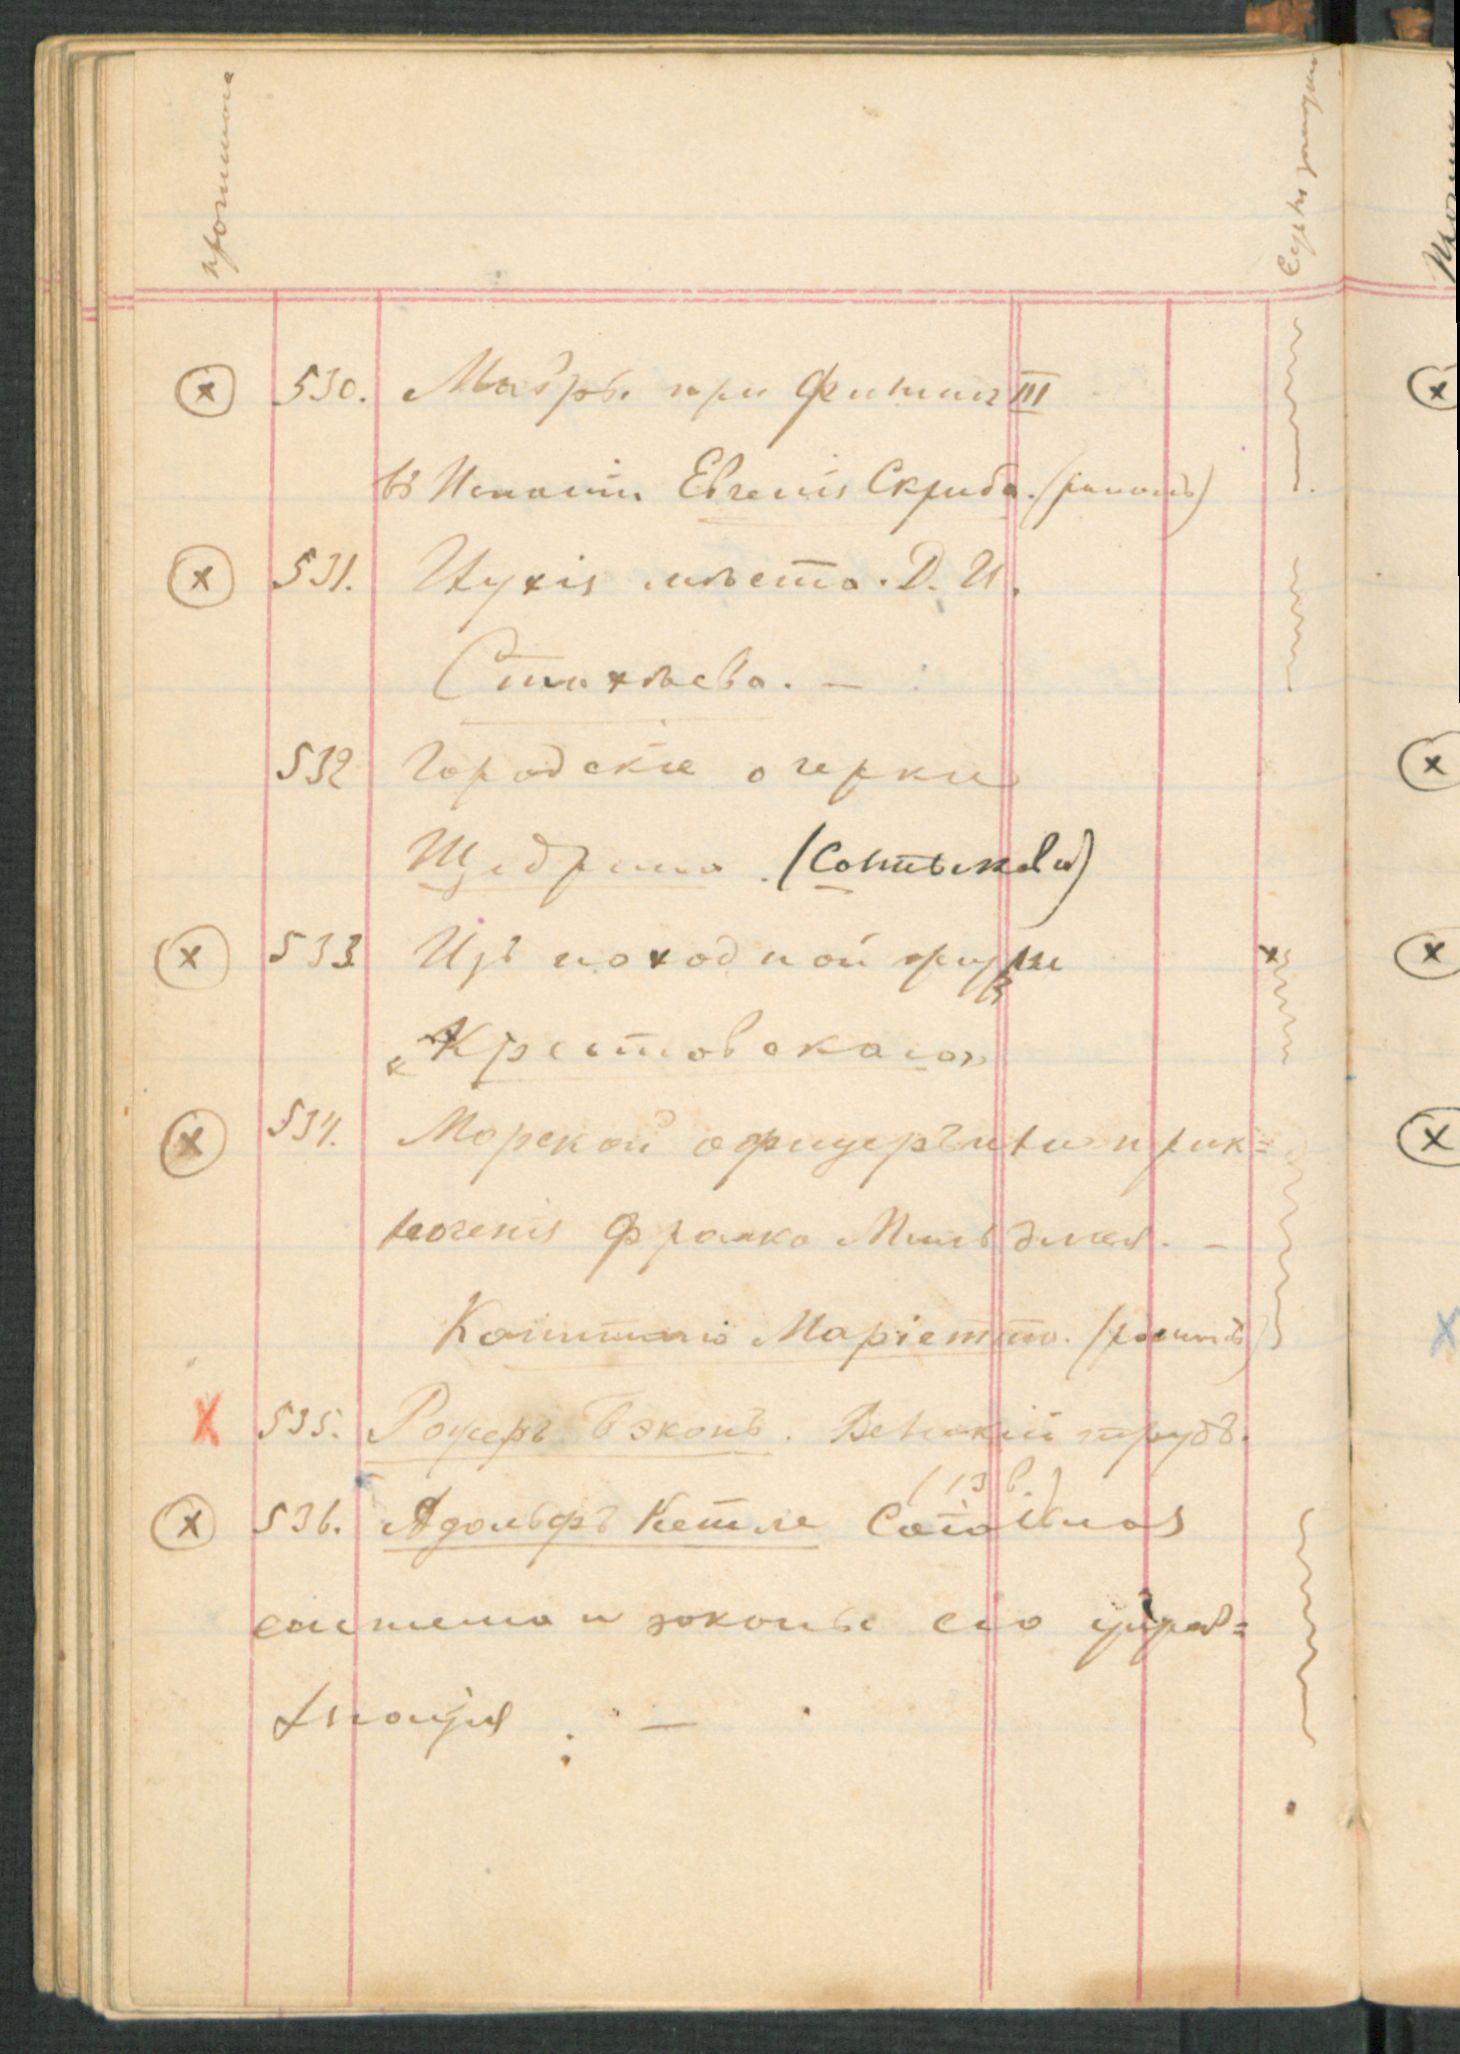 прочитана
Есть записи
530. Мавры при Филиппѣ III
въ Испаніи Евгенія Скриба. (романъ)
531. Глухія мѣста. Д. И.
Стахѣева. –
532 Городскіе очерки
Щедрина. (Солтыкова)
533 Изъ походной
„Крестовскаго"
534. Морской офицеръ или прик=
люченія Франка Мильдмея. –
Капитана Маріетта. (романъ)
535. Рожеръ Бэконъ. Великій трудъ.
(13 в.)
536. Адольфъ Кетле Соціальная
система и законы ею управ=
ляющіе –